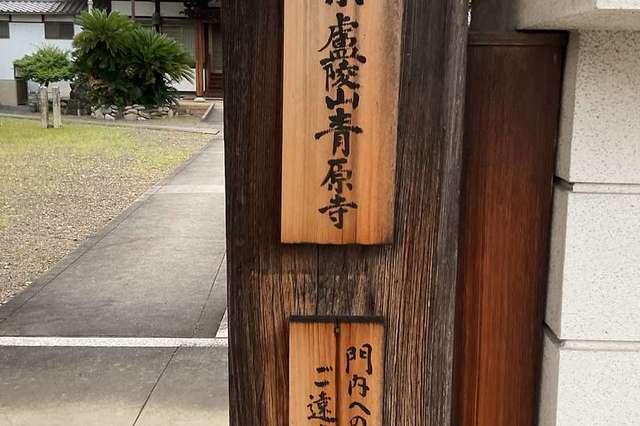 盧陵山青原寺
門内への
ご遠